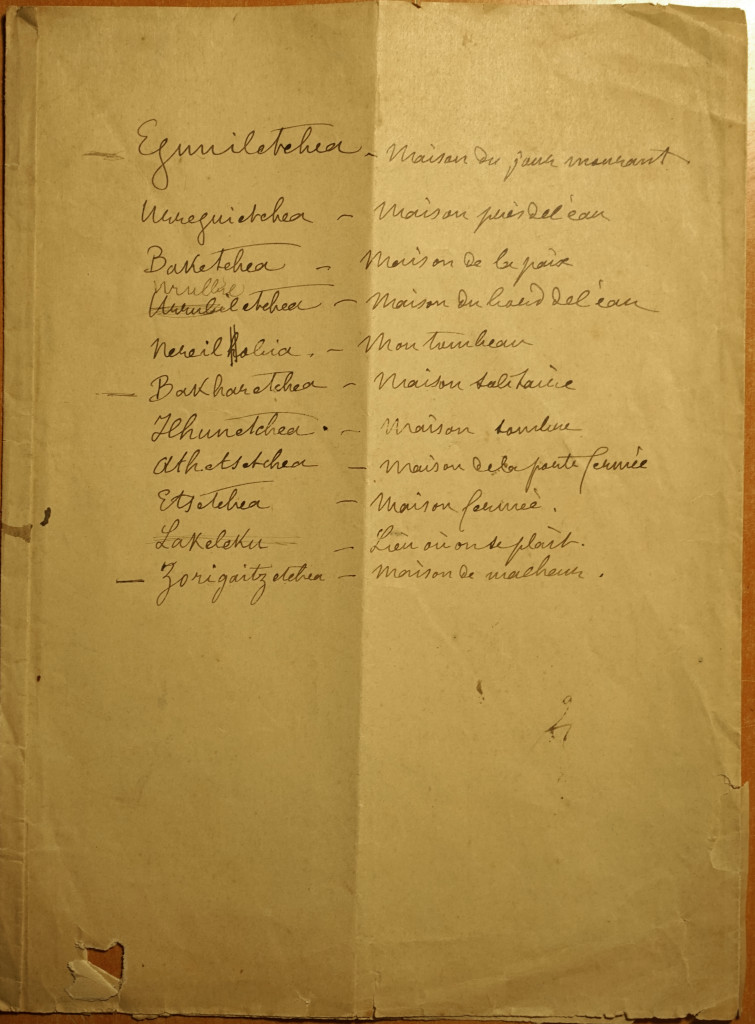 — Eguniletchea – Maison du jour mourant
Urreguietchea – Maison près de l'eau
Baketchea – Maison de la paix
Urulbe
Urrubiletchea – Maison du bord de l'eau
Nereil hobia . – Mon tombeau
— Bakharetchea – Maison solitaire
Ilhunetchea . – Maison sombre
Athetsetchea – Maison de la porte fermée
Etsetchea – Maison fermée.
Lakeleku – Lieu où on se plaît.
— Zorigaitzetchea – Maison de malheur.